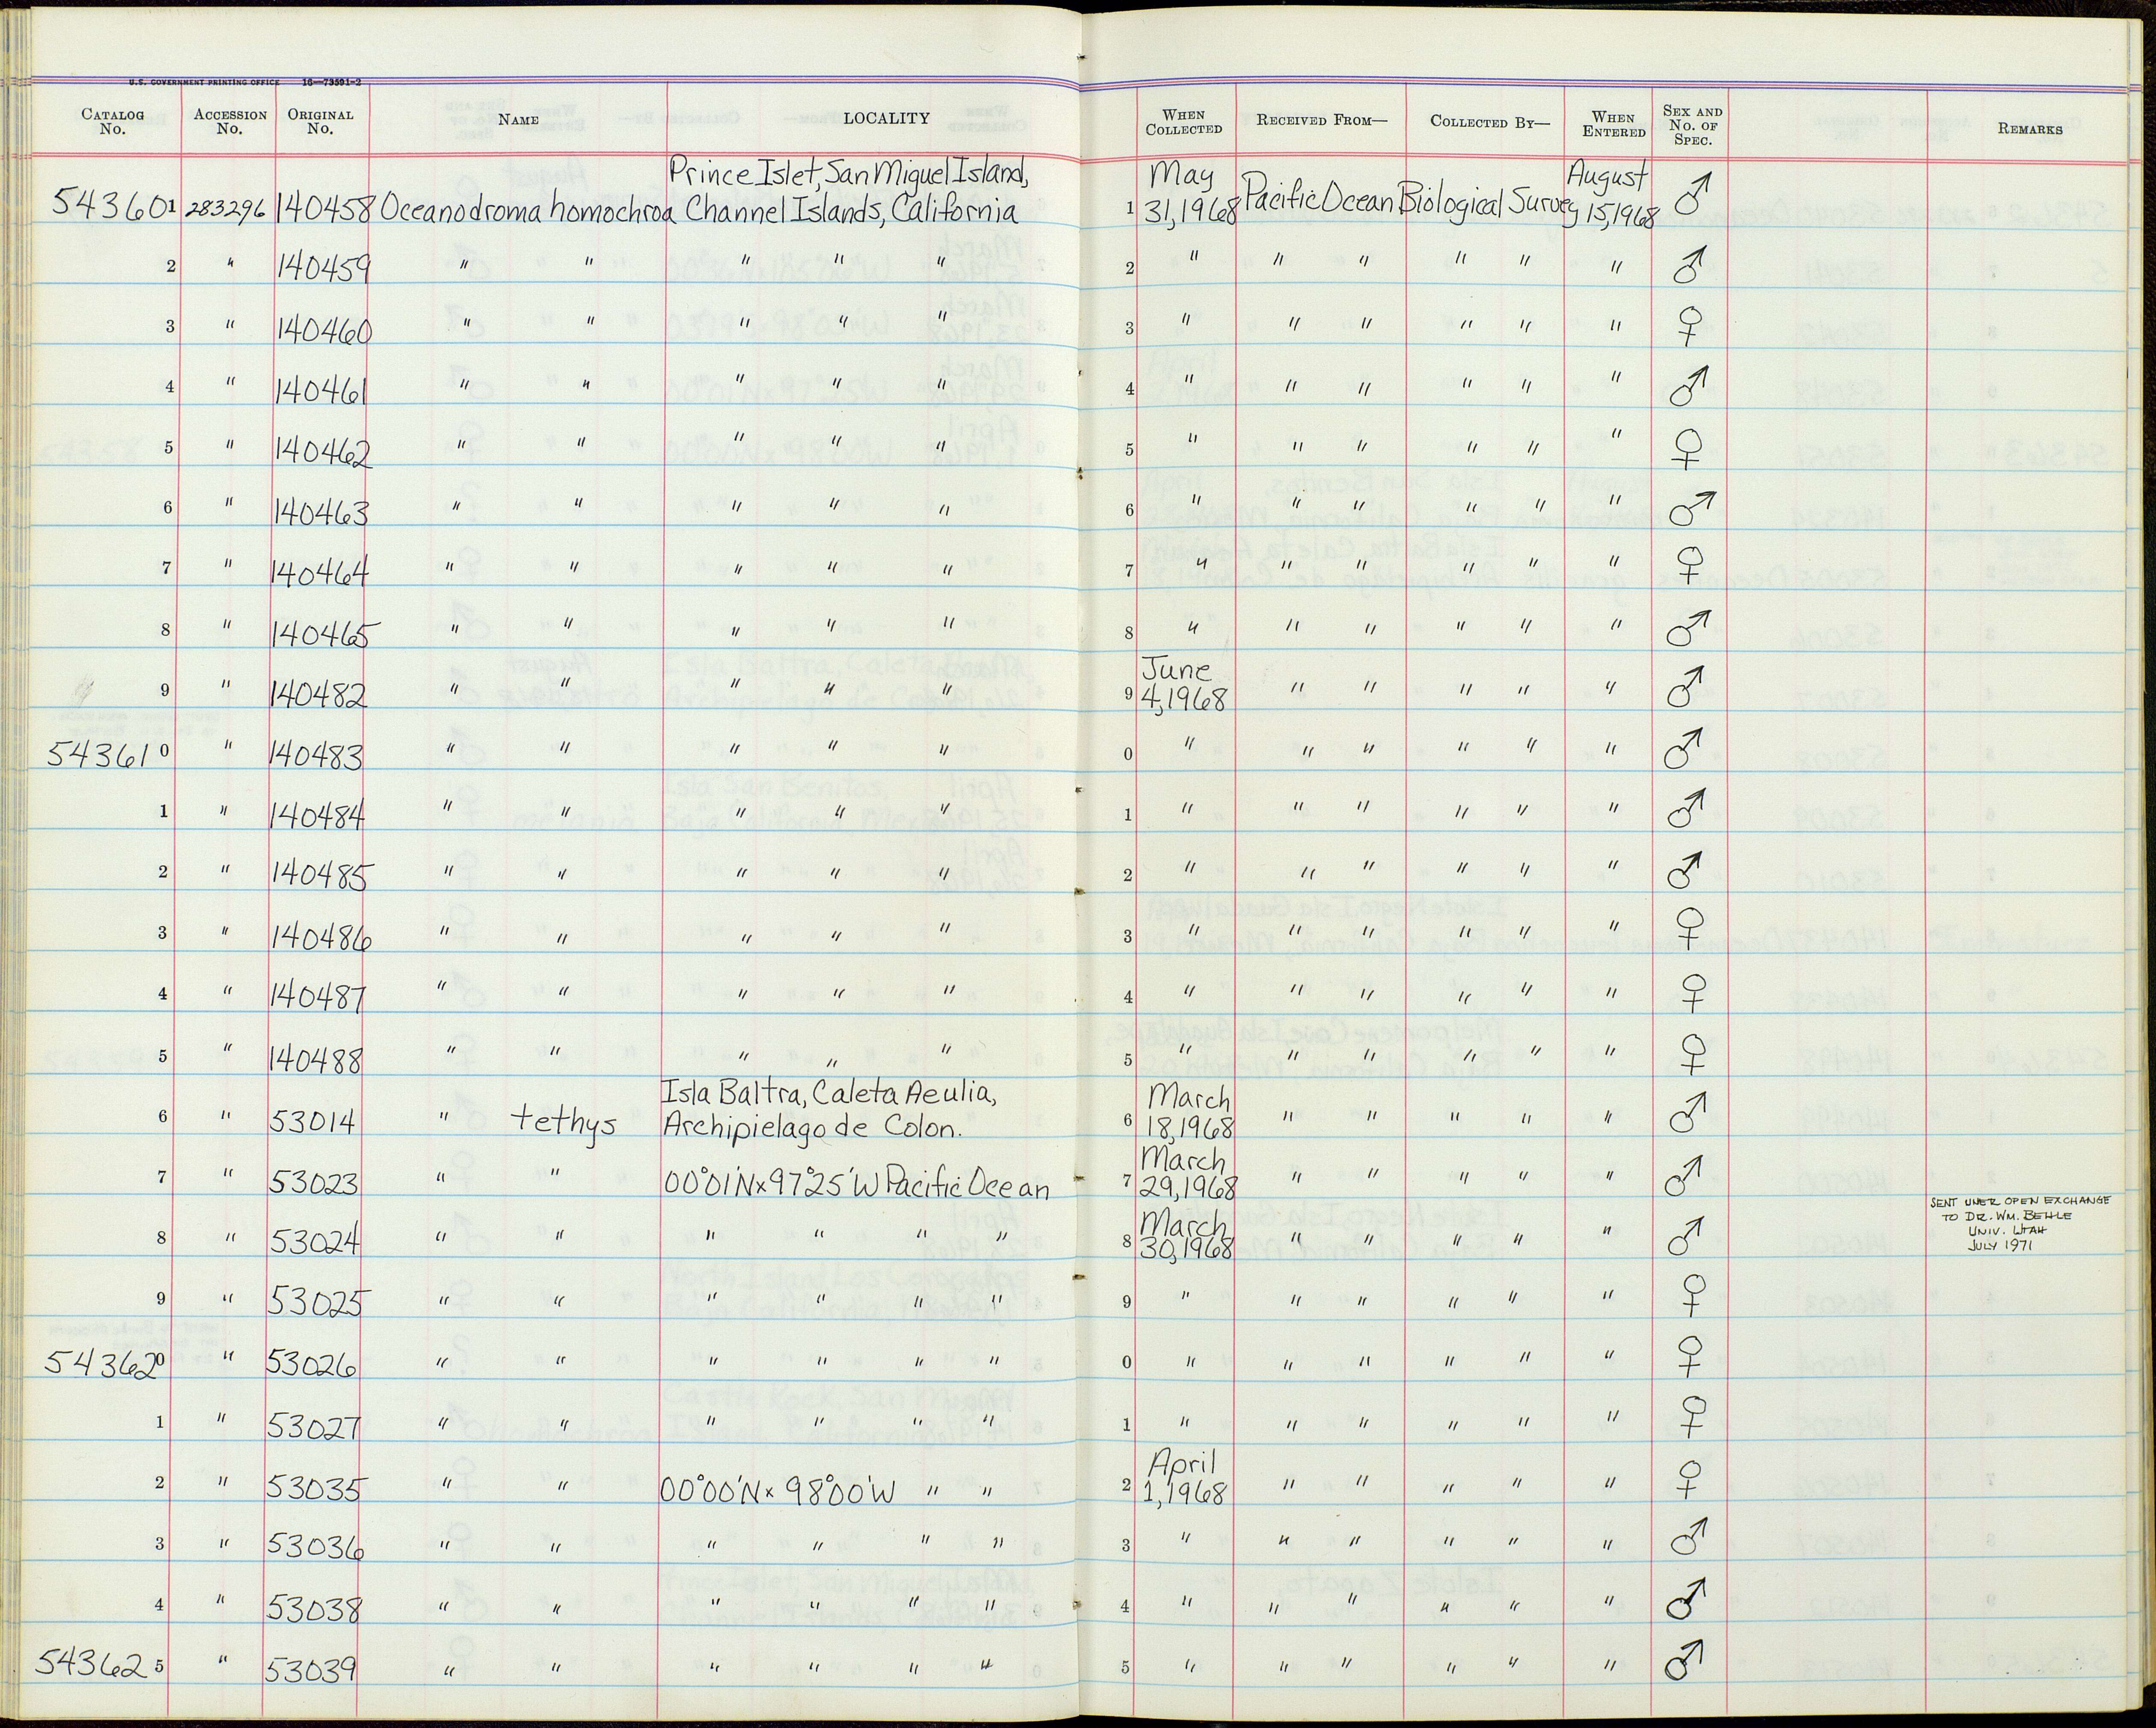 U.S. GOVERNMENT PRINTING OFFICE 16—73591-2
CATALOG No. ACCESSION No. ORIGINAL No. NAME LOCALITY WHEN COLLECTED RECEIVED FROM— COLLECTED BY— WHEN ENTERED SEX AND No. OF SPEC. REMARKS
Prince Islet, San Miguel Island, May August
543601 283296 140458 Oceanodroma homochroa Channel Islands, California 1 31,1968 Pacific Ocean Biological Survey 15,1968 ♂
2 " 140459 " " " " " 2 " " " " " " ♂
3 " 140460 " " " " " 3 " " " " " " ♀
4 " 140461 " " " " " 4 " " " " " " ♂
5 " 140462 " " " " " 5 " " " " " " ♀
6 " 140463 " " " " " 6 " " " " " " ♂
7 " 140464 " " " " " 7 " " " " " " ♀
8 " 140465 " " " " " 8 " " " " " " ♂
June
9 " 140482 " " " " " 9 4,1968 " " " " " ♂
543610 " 140483 " " " " " 0 " " " " " " ♂
1 " 140484 " " " " " 1 " " " " " " ♂
2 " 140485 " " " " " 2 " " " " " " ♂
3 " 140486 " " " " " 3 " " " " " " ♀
4 " 140487 " " " " " 4 " " " " " " ♀
5 " 140488 " " " " " 5 " " " " " " ♀
Isla Baltra, Caleta Aeulia, March
6 " 53014 " tethys Archipielago de Colon. 6 18,1968 " " " " " ♂
March
7 " 53023 " " 00°01'N x 97°25'W Pacific Ocean 7 29,1968 " " " " " ♂
March
8 " 53024 " " " " " " 8 30,1968 " " " " " ♂
SENT UNER OPEN EXCHANGE
TO DR. WM. BEHLE
UNIV. UTAH
JULY 1971
9 " 53025 " " " " " " 9 " " " " " " ♀
543620 " 53026 " " " " " " 0 " " " " " " ♀
1 " 53027 " " " " " " 1 " " " " " " ♀
April
2 " 53035 " " 00°00'N x 98°00'W " " 2 1,1968 " " " " " ♀
3 " 53036 " " " " " " 3 " " " " " " ♂
4 " 53038 " " " " " " 4 " " " " " " ♂
543625 " 53039 " " " " " " 5 " " " " " " ♂